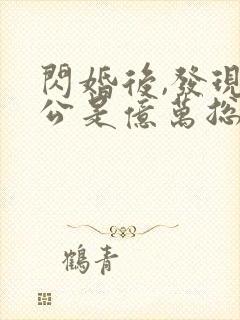 閃婚後,發現
公是億萬總
鶴青